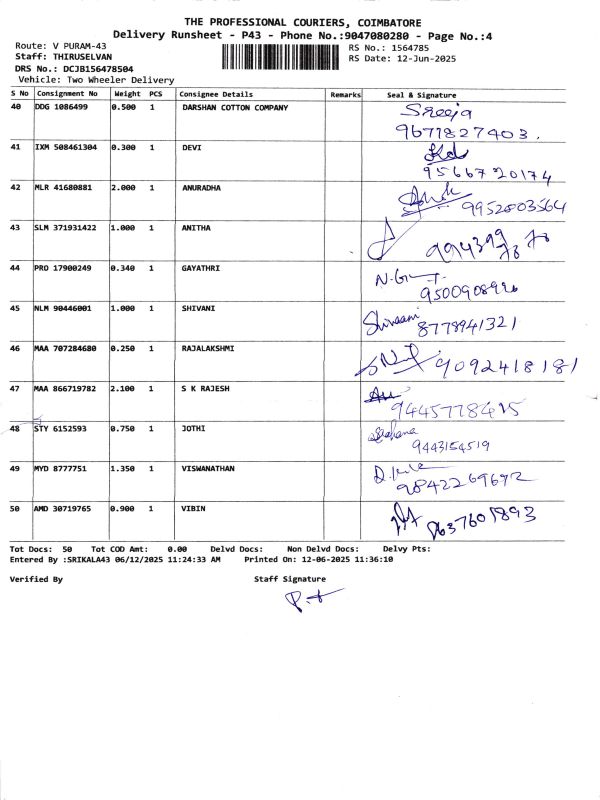 THE PROFESSIONAL COURIERS, COIMBATORE
Delivery Runsheet - P43 - Phone No.:9047080280 - Page No.:4
Route: V PURAM-43
RS No.: 1564785
Staff: THIRUSELVAN
RS Date: 12-Jun-2025
DRS No.: DCJB156478504
Vehicle: Two Wheeler Delivery
S No Consignment No Weight PCS Consignee Details Remarks Seal & Signature
40 DDG 1086499 0.500 1 DARSHAN COTTON COMPANY Sreeja
9671827403.
41 IXM 508461304 0.300 1 DEVI
9566720174
42 MLR 41680881 2.000 1 ANURADHA 9952803564
43 SLM 371931422 1.000 1 ANITHA
44 PRO 17900249 0.340 1 GAYATHRI
45 NLM 90446001 1.000 1 SHIVANI Shivaani 8778941321
46 MAA 707284680 0.250 1 RAJALAKSHMI 9092418181
47 MAA 866719782 2.100 1 S K RAJESH
48 STY 6152593 0.750 1 JOTHI
9443154519
49 MYD 8777751 1.350 1 VISWANATHAN
50 AMD 30719765 0.900 1 VIBIN
Tot Docs: 50 Tot COD Amt: 0.00 Delvd Docs: Non Delvd Docs: Delvy Pts:
Entered By :SRIKALA43 06/12/2025 11:24:33 AM Printed On: 12-06-2025 11:36:10
Verified By Staff Signature